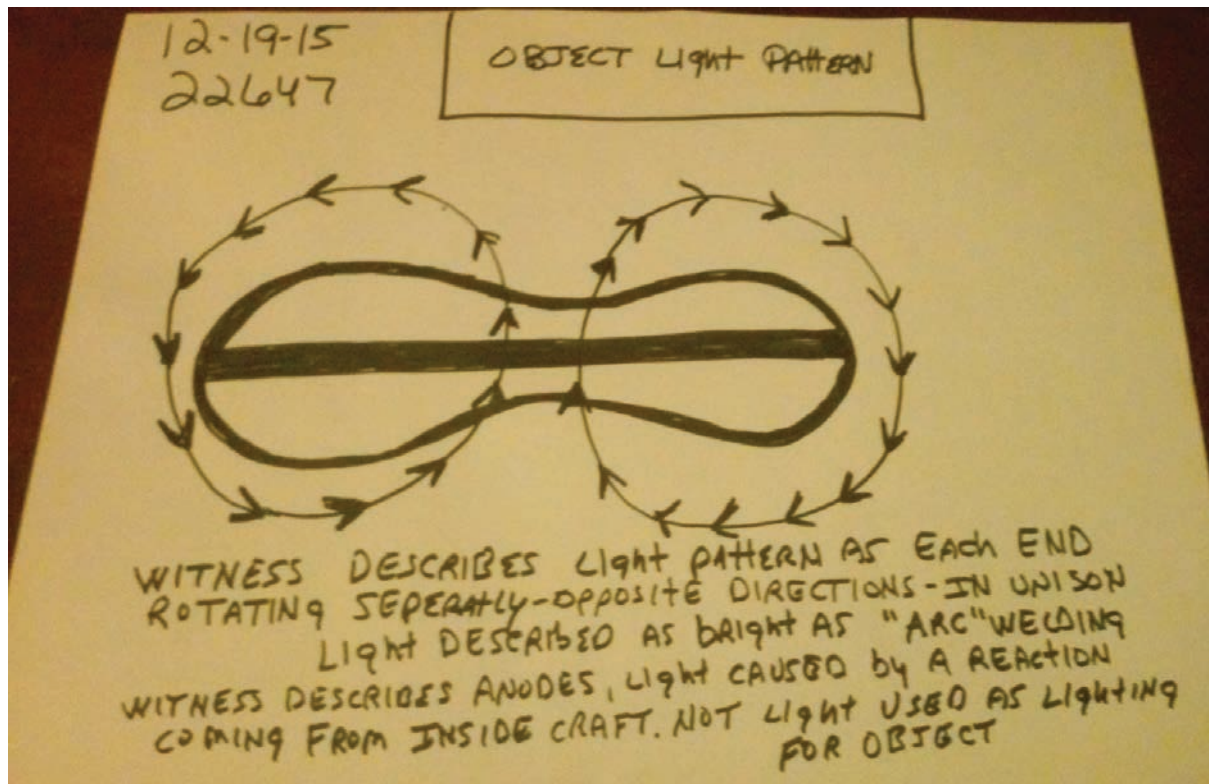 12-19-15
22647
OBJECT LIGHT PATTERN
WITNESS DESCRIBES LIGHT PATTERN AS EACH END
ROTATING SEPERATLY-OPPOSITE DIRECTIONS-IN UNISON
LIGHT DESCRIBED AS BRIGHT AS "ARC" WELDING
WITNESS DESCRIBES ANODES, LIGHT CAUSED BY A REACTION
COMING FROM INSIDE CRAFT. NOT LIGHT USED AS LIGHTING
FOR OBJECT